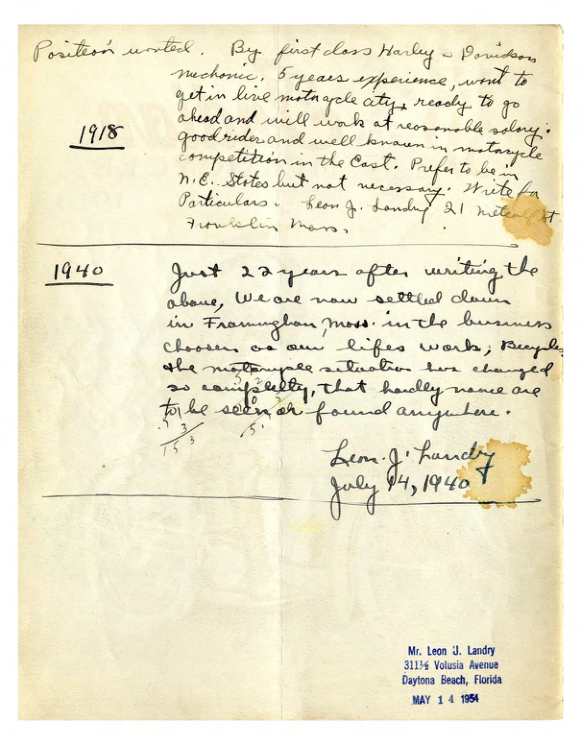 Position wanted. By first class Harley-Davidson
mechanic. 5 years experience, want to
get in live motorcycle city, ready to go
ahead and will work at reasonable salary.
1918
good rider and well known in motorcycle
competition in the East. Prefer to be in
N.E. States but not necessary. Write for
Particulars. Leon J. Landry 21 Metcalf St
Franklin Mass.
1940
Just 22 years after writing the
above, We are now settled down
in Framingham, Mass. in the business
choosen as our lifes work; Bicycles
the motorcycle situation has changed
so completly, that hardly none are
to be seen or found anywhere.
153
Leon. J. Landry
July 14, 1940
Mr. Leon J. Landry
311½ Volusia Avenue
Daytona Beach, Florida
MAY 14 1954